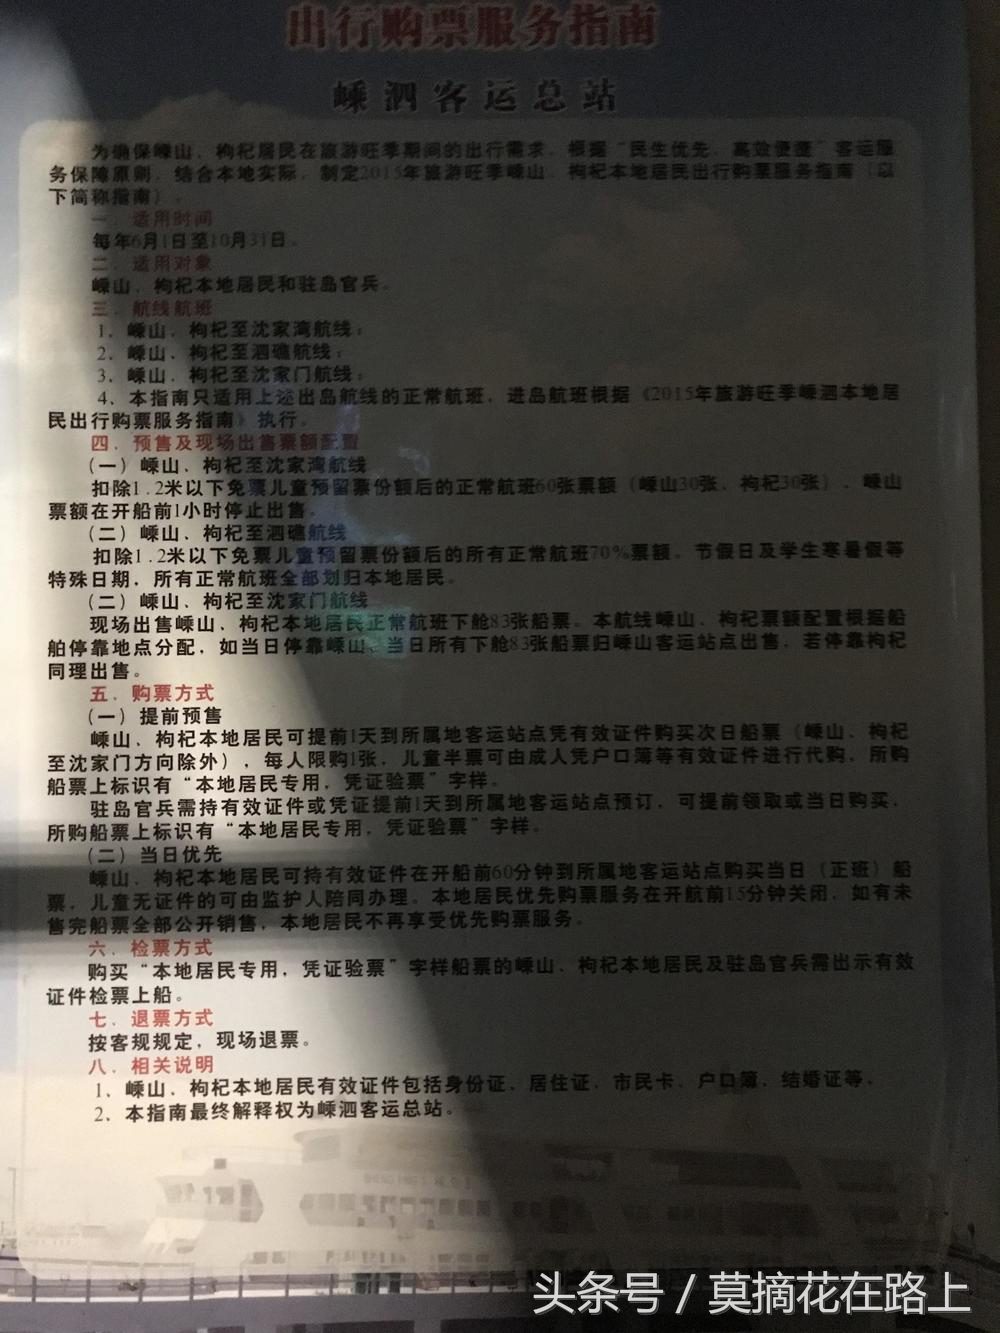 出行购票服务指南
嵊泗客运总站
为确保嵊山、枸杞居民在旅游旺季期间的出行需求，根据“民生优先、高效便捷”客运服
务保障原则，结合本地实际，制定2015年旅游旺季嵊山、枸杞本地居民出行购票服务指南（以
下简称指南）。
一．适用时间
每年6月1日至10月31日。
二．适用对象
嵊山、枸杞本地居民和驻岛官兵。
三．航线航班
1、嵊山、枸杞至沈家湾航线；
2、嵊山、枸杞至泗礁航线；
3、嵊山、枸杞至沈家门航线；
4、本指南只适用上述出岛航线的正常航班，进岛航班根据《2015年旅游旺季嵊泗本地居
民出行购票服务指南》执行。
四．预售及现场出售票额配置
（一）嵊山、枸杞至沈家湾航线
扣除1.2米以下免票儿童预留票份额后的正常航班60张票额（嵊山30张、枸杞30张）、嵊山
票额在开船前1小时停止出售。
（二）嵊山、枸杞至泗礁航线
扣除1.2米以下免票儿童预留票份额后的所有正常航班70%票额。节假日及学生寒暑假等
特殊日期，所有正常航班全部划归本地居民。
（二）嵊山、枸杞至沈家门航线
现场出售嵊山、枸杞本地居民正常航班下舱83张船票。本航线嵊山、枸杞票额配置根据船
舶停靠地点分配，如当日停靠嵊山，当日所有下舱83张船票归嵊山客运站点出售，若停靠枸杞
同理出售。
五．购票方式
（一）提前预售
嵊山、枸杞本地居民可提前1天到所属地客运站点凭有效证件购买次日船票（嵊山、枸杞
至沈家门方向除外），每人限购1张，儿童半票可由成人凭户口簿等有效证件进行代购，所购
船票上标识有“本地居民专用，凭证验票”字样。
驻岛官兵需持有效证件或凭证提前1天到所属地客运站点预订，可提前领取或当日购买，
所购船票上标识有“本地居民专用，凭证验票”字样。
（二）当日优先
嵊山、枸杞本地居民可持有效证件在开船前60分钟到所属地客运站点购买当日（正班）船
票，儿童无证件的可由监护人陪同办理。本地居民优先购票服务在开航前15分钟关闭，如有未
售完船票全部公开销售，本地居民不再享受优先购票服务。
六．检票方式
购买“本地居民专用，凭证验票”字样船票的嵊山、枸杞本地居民及驻岛官兵需出示有效
证件检票上船。
七．退票方式
按客规规定，现场退票。
八．相关说明
1、嵊山、枸杞本地居民有效证件包括身份证、居住证、市民卡、户口簿、结婚证等。
2、本指南最终解释权为嵊泗客运总站。
头条号 / 莫摘花在路上